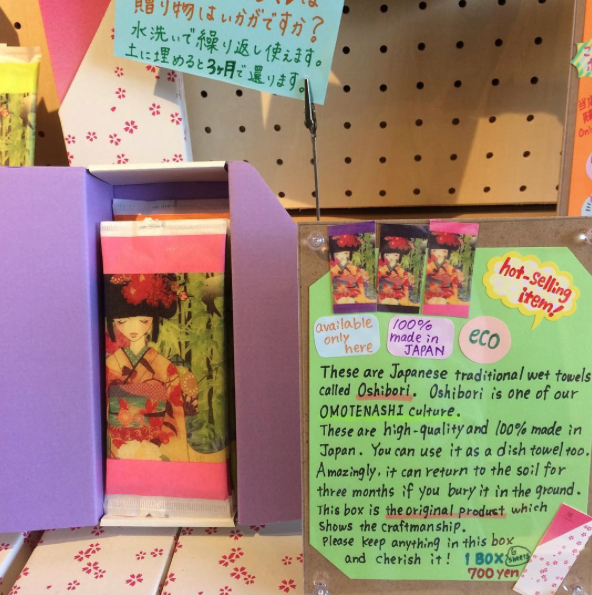 贈り物はいかがですか?
水洗いで繰り返し使えます。
土に埋めると3ヶ月で還ります。
hot-selling
item!
available
only
here
100%
made in
JAPAN
eco
These are Japanese traditional wet towels
called Oshibori. Oshibori is one of our
OMOTENASHI culture.
These are high-quality and 100% made in
Japan. You can use it as a dish towel too.
Amazingly, it can return to the soil for
three months if you bury it in the ground.
This box is the original product which
shows the craftmanship.
Please keep anything in this box
and cherish it!
1 BOX 6 sheets
700 yen
Only